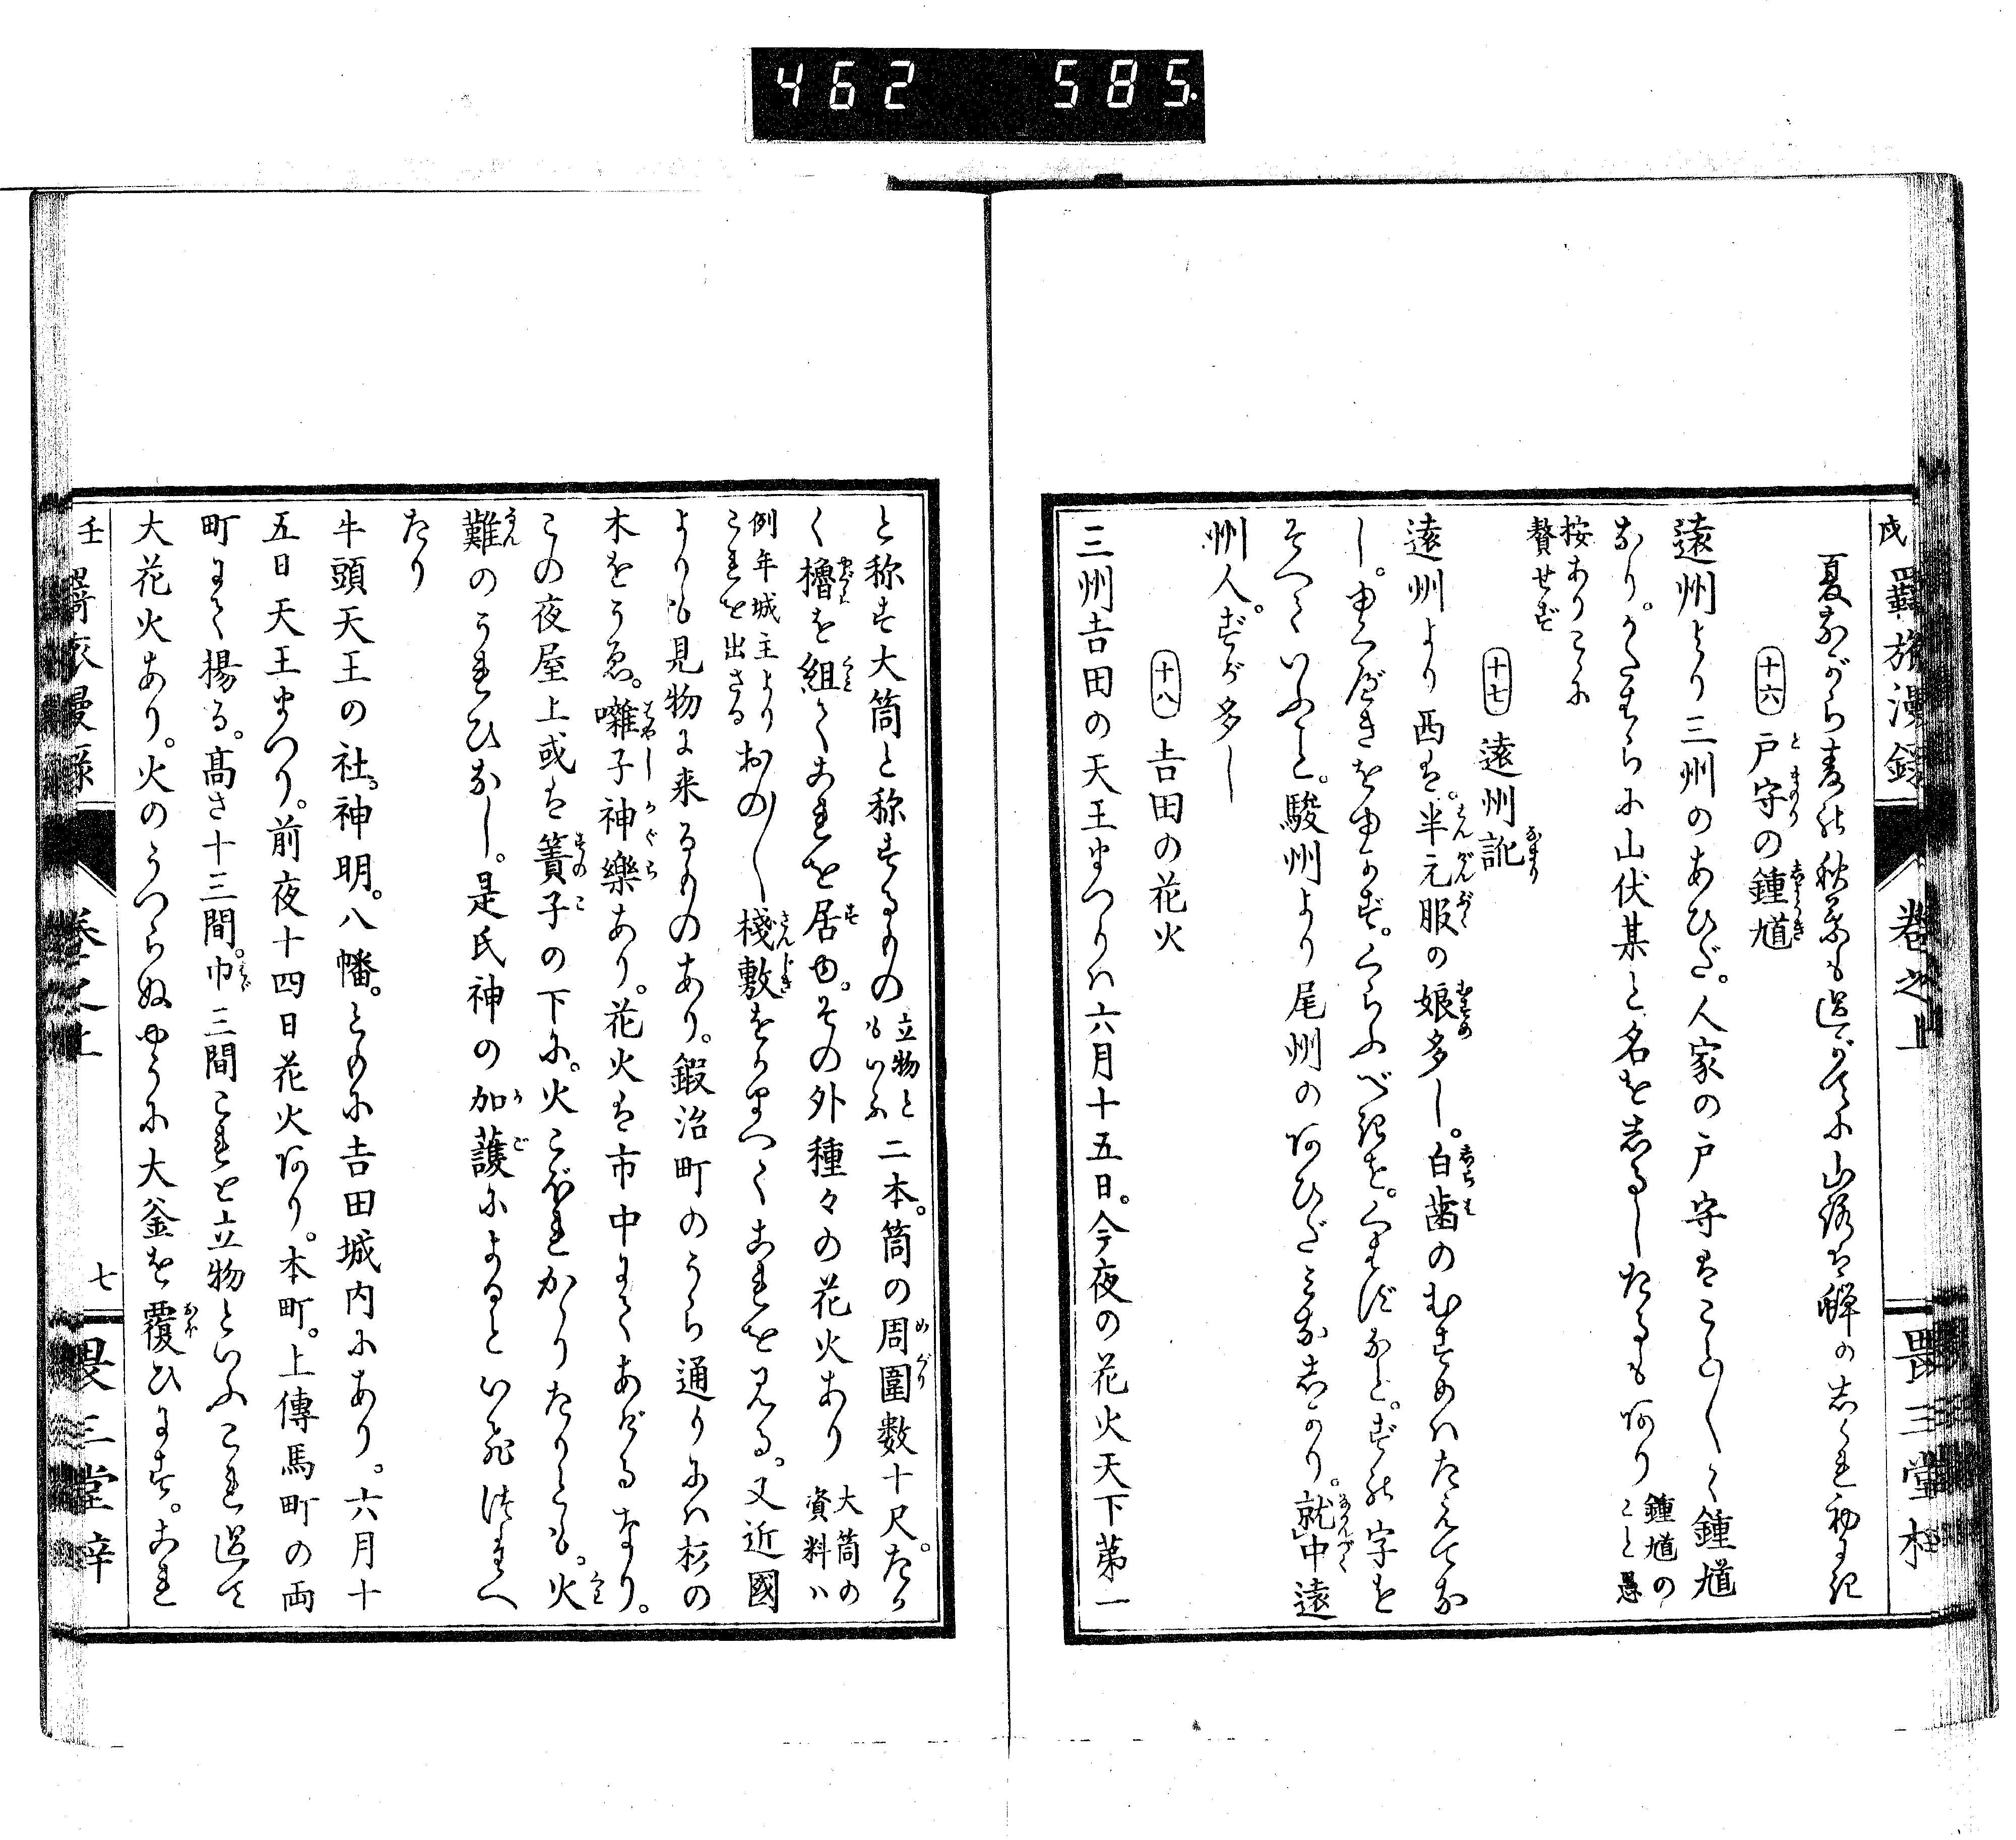 462 585.
羇旅漫録 巻之上 畏三堂梓
夏ながら麦の秋葉も過がてに山路は蝉のしぐれ初にき
十六 戸守の鍾馗
遠州より三州のあひだ。人家の戸守はこと〴〵く鍾馗
なり。かたはらに山伏某と名をしるしたるもあり 鍾馗のこと愚
按ありこゝに
贅せず
十七 遠州訛
遠州より西は。半元服の娘多し。白歯のむすめはたえてな
し。ゆくべきをゆかず。くらふべきを。くはずなど。ずの字を
そへていふこと。駿州より尾州のあひだみなしかり。就中遠
州人。ずが多し
十八 吉田の花火
三州吉田の天王まつりは六月十五日。今夜の花火天下第一
と称す大筒と称するもの 立物ともいふ 二本。筒の周囲数十尺。たか
く櫓を組てこれを居ゆ。その外種々の花火あり 大筒の資料は
例年城主よりこれを出さる おの〳〵桟敷をかまへてこれを見る。又近國
よりも見物に来るものあり。鍛冶町のうら通りには杉の
木をうゑ。囃子神樂あり。花火は市中にてあぐるなり。
この夜屋上或は簀子の下に。火こぼれかゝりたりとも。火
難のうれひなし。是氏神の加護によるといひつたへ
たり
牛頭天王の社。神明。八幡。ともに吉田城内にあり。六月十
五日天王まつり。前夜十四日花火あり。本町。上傳馬町の両
町にて揚る。高さ十三間。巾三間これを立物といふこれ過て
大花火あり。火のうつらぬやうに大釜を覆ひにす。これ
七 畏三堂梓